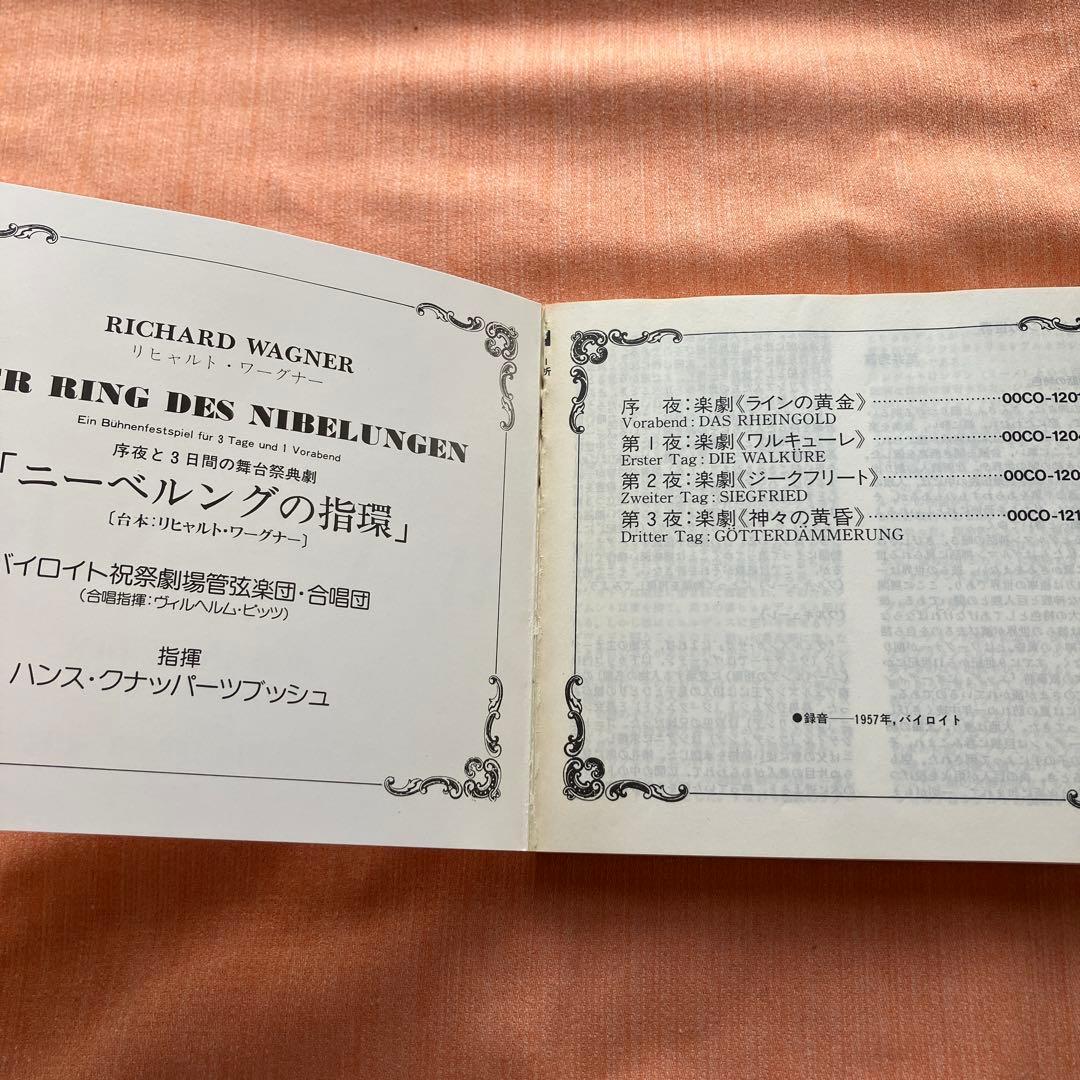 RICHARD WAGNER
リヒャルト・ワーグナー
ER RING DES NIBELUNGEN
Ein Bühnenfestspiel für 3 Tage und 1 Vorabend
序夜と3日間の舞台祭典劇
「ニーベルングの指環」
〔台本:リヒャルト・ワーグナー〕
バイロイト祝祭劇場管弦楽団・合唱団
(合唱指揮:ヴィルヘルム・ピッツ)
指揮
ハンス・クナッパーツブッシュ
序 夜:楽劇《ラインの黄金》 00CO-1201
Vorabend : DAS RHEINGOLD
第1夜:楽劇《ワルキューレ》 00CO-1204
Erster Tag : DIE WALKÜRE
第2夜:楽劇《ジークフリート》 00CO-120
Zweiter Tag : SIEGFRIED
第3夜:楽劇《神々の黄昏》 00CO-121
Dritter Tag : GÖTTERDÄMMERUNG
●録音──1957年,バイロイト